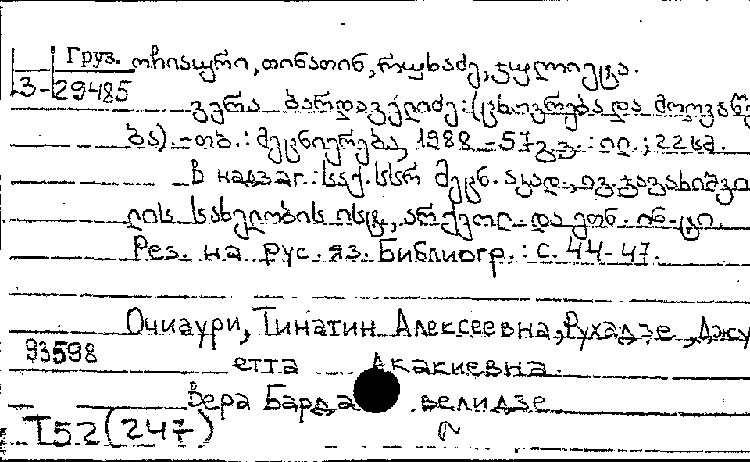 Груз. ოჩიაური, თინათინ, რუხაძე, ჯულიეტა.
3-29485
ვერა ბარდაველიძე: (ცხოვრება და მოღვაწე
ბა).-თბ.: მეცნიერება, 1988.-57გვ.: ილ.; 22სმ.
В надзаг.: საქ. სსრ მეცნ. აკად., ივ. ჯავახიშვი
ლის სახელობის ისტ., არქეოლ. და ეთნ. ინ-ტი.
Рез. на рус. яз. Библиогр.: с. 44-47.
Очиаури, Тинатин Алексеевна, Рухадзе, Джу
93598 етта Акакиевна.
Вера Барда велидзе
T52(247)